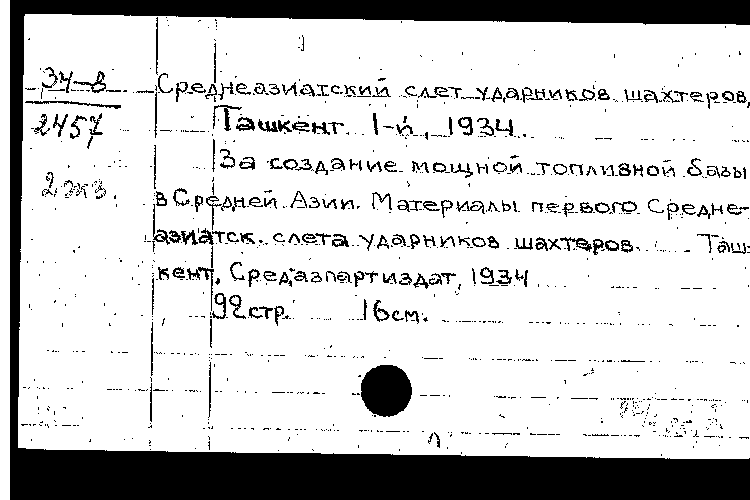 34-8
2457
2 экз.
Среднеазиатский слет ударников шахтеров,
Ташкент. 1-й, 1934.
За создание мощной топливной базы
в Средней Азии. Материалы первого Средне-
азиатск. слета ударников шахтеров. Таш-
кент, Средазпартиздат, 1934
92 стр. 16 см.